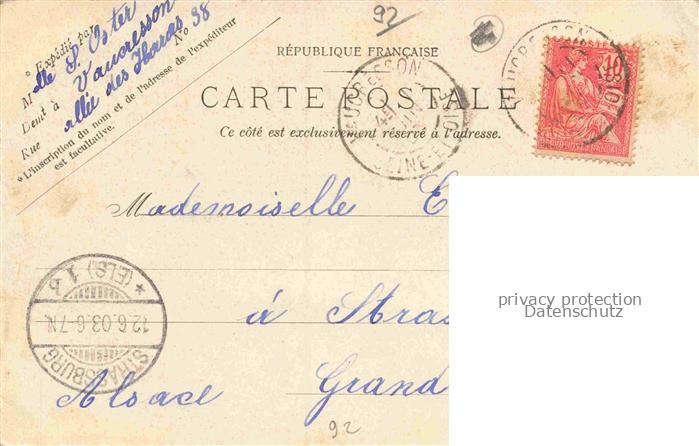 92
* Expédié par
Mlle S. Oster
Demt à Vaucresson
Rue allée des Haras No 38
* L'inscription du nom et de l'adresse de l'expéditeur
est facultative.
RÉPUBLIQUE FRANÇAISE
CARTE POSTALE
Ce côté est exclusivement réservé à l'adresse.
VAUCRESSON
SEINE-ET-OISE
10
Mademoiselle E
à Stras
Alsace Grand
92
STRASSBURG
12.6.03.6-7N.
* (ELS) 1 b
privacy protection
Datenschutz